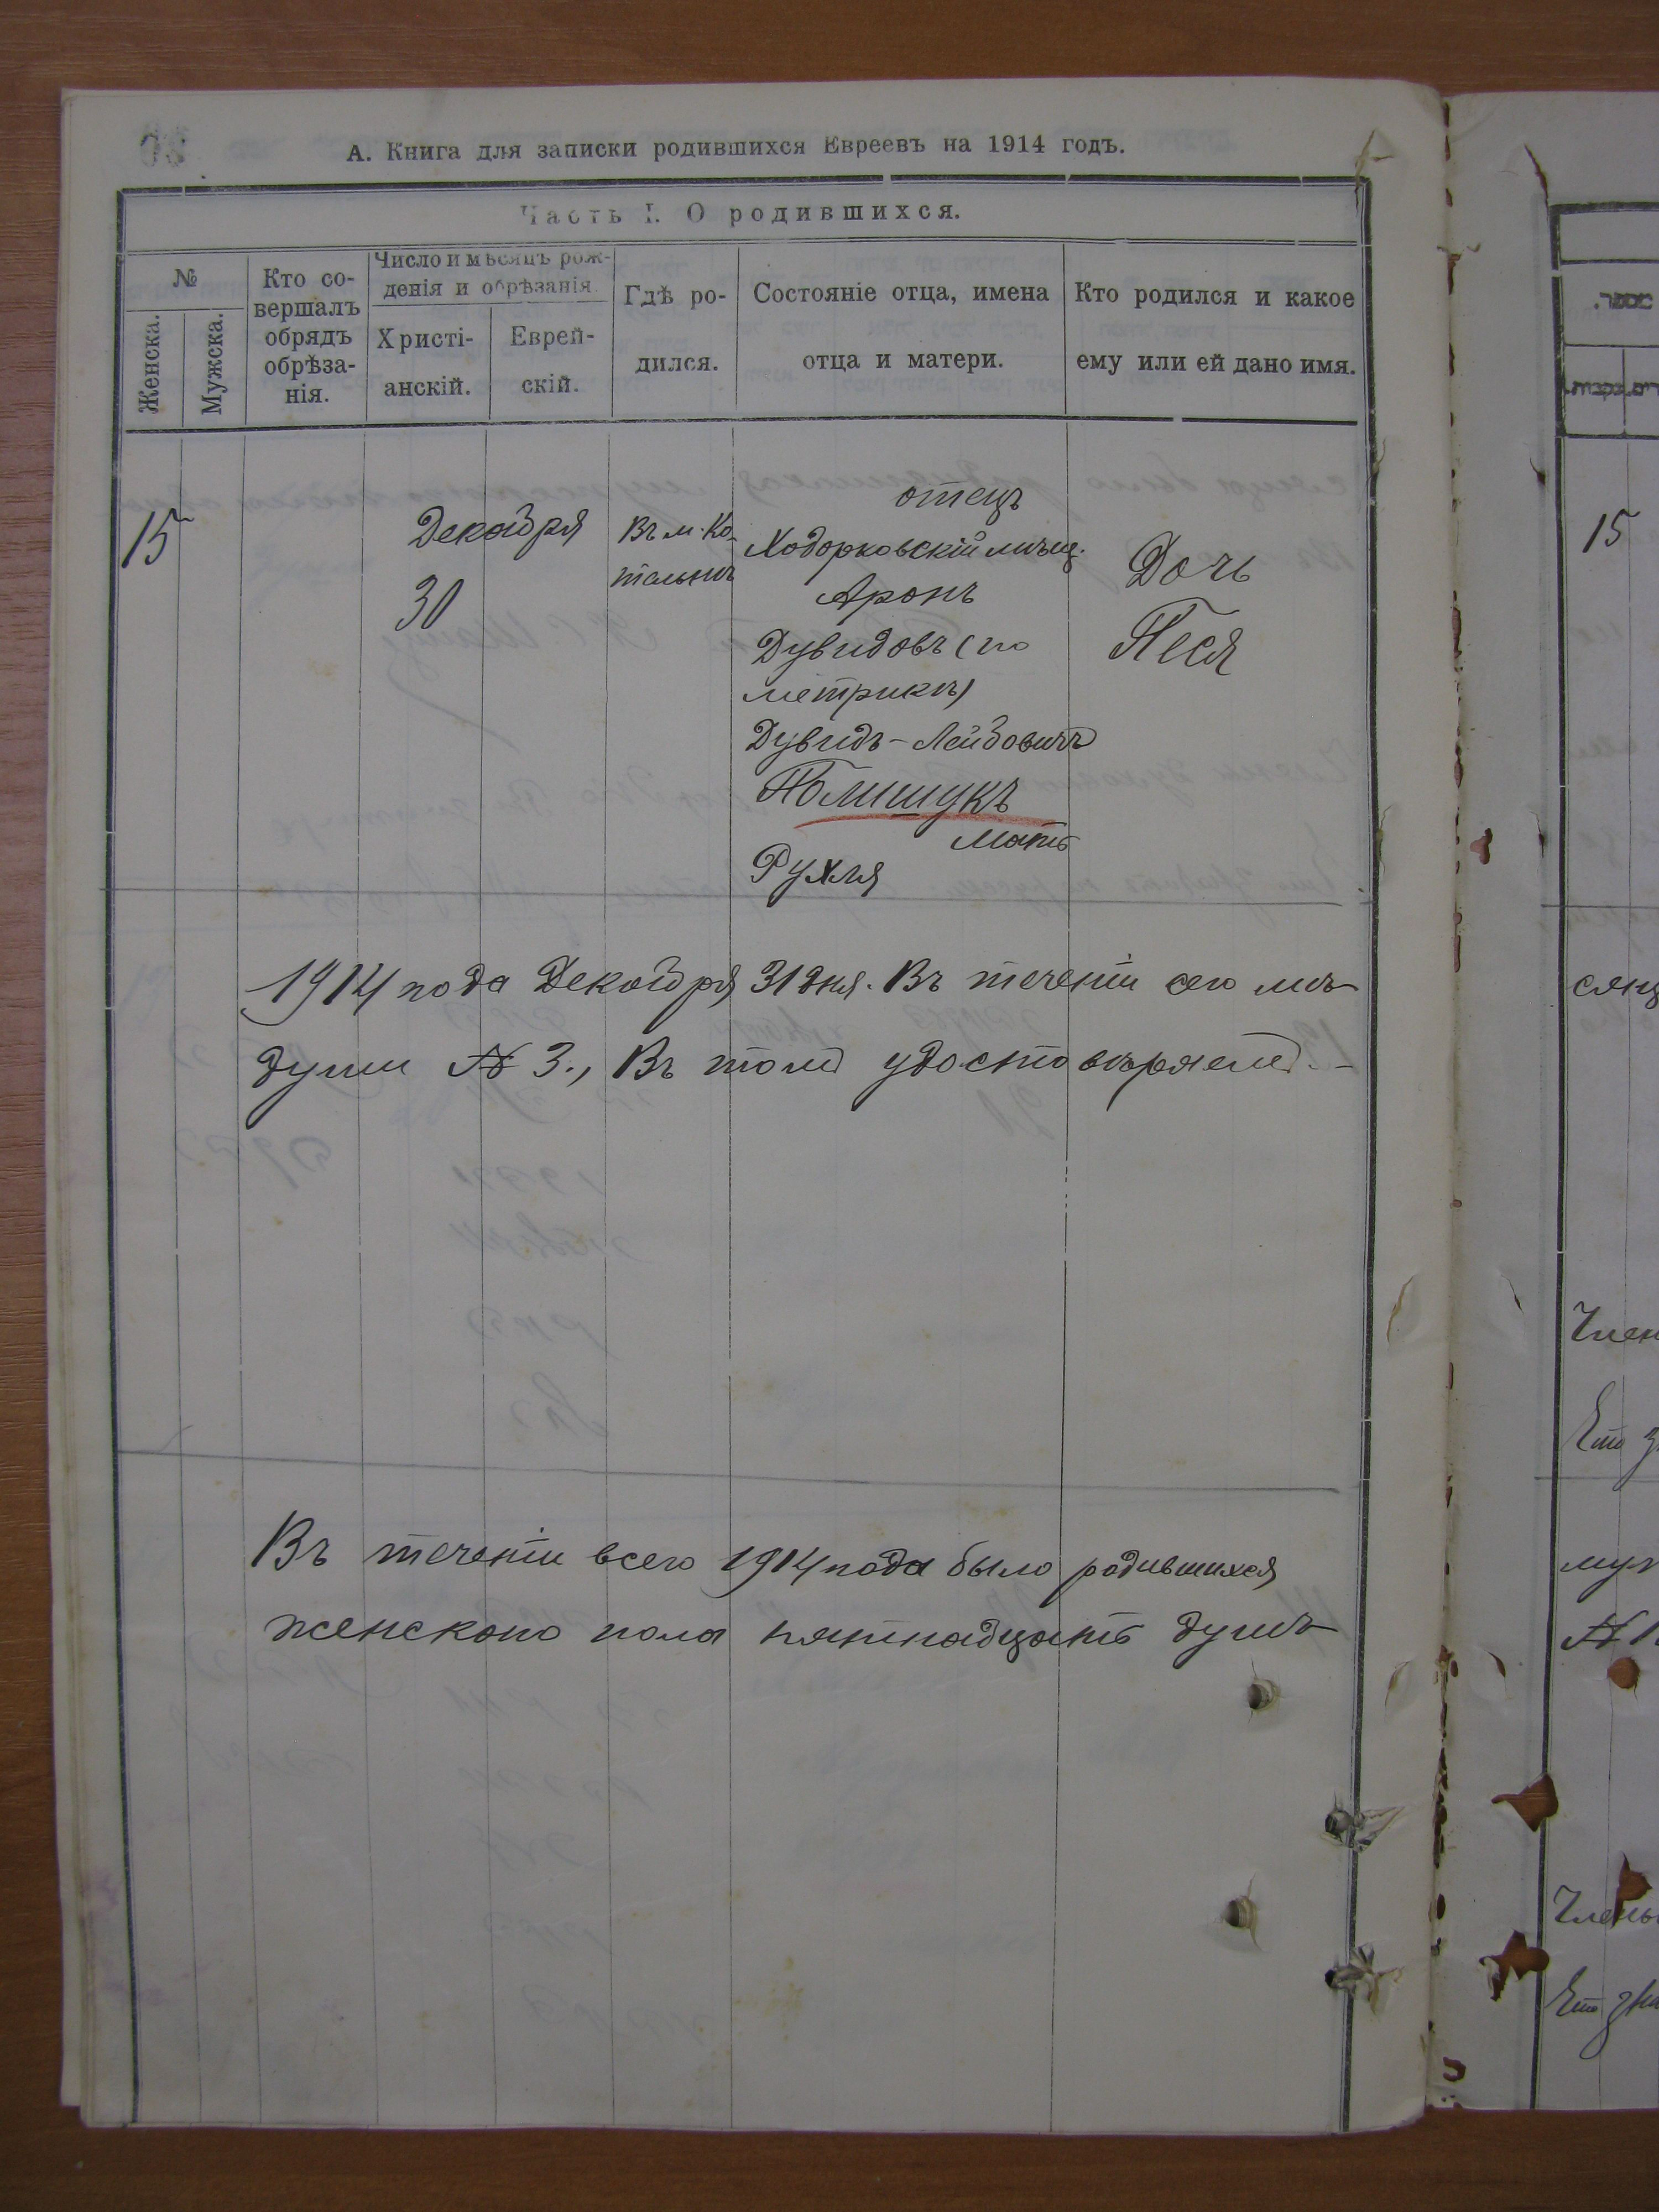 А. Книга для записки родившихся Евреевъ на 1914 годъ.
Часть I. О родившихся.
№
Женска.
Мужска.
Кто со-
вершалъ
обрядъ
обрѣза-
нія.
Число и мѣсяцъ рож-
денія и обрѣзанія.
Христі-
анскій.
Еврей-
скій.
Гдѣ ро-
дился.
Состояніе отца, имена
отца и матери.
Кто родился и какое
ему или ей дано имя.
15
Декабря
30
Въ м. Ко-
тельнѣ
отецъ
Ходорковскій мѣщ.
Аронъ
Дувидовъ (по
метрикѣ)
Дувидъ-Лейбовичъ
Полишукъ
Мать
Рухля
Дочь
Песя
1914 года Декабря 31 дня. Въ теченіи сего мѣ-
души № 3., Въ томъ удостовѣряемъ.-
Въ теченіи всего 1914 года было родившихся
женскаго пола пятнадцать душъ
15
сяц
Член
муж
Члены